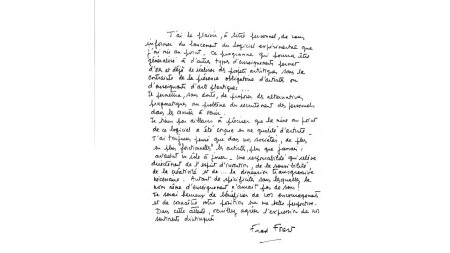 J'ai le plaisir, à titre personnel, de vous
informer du lancement du logiciel expérimental que
j'ai mis au point. Ce programme qui pourra être
généralisé à d'autres types d'enseignements permet
d'ores et déjà de réaliser des projets artistiques sans la
contrainte de la présence obligatoire d'artistes ou
d'enseignants d'art plastiques...
Je permettrai, sans doute, de proposer des alternatives
pragmatiques au problème du recrutement des personnels
dans les années à venir.
Je tiens par ailleurs à préciser que la mise au point
de ce logiciel a été conçue en ma qualité d'artiste.
J'ai toujours pensé que dans nos sociétés, de plus
en plus fonctionnelles les artistes, plus que jamais,
avaient un rôle à jouer. Une responsabilité qui relève
directement de l'esprit d'invention, de la sensibilité
de la créativité et de la dimension transgressive
nécessaire. Autant de spécificités sans lesquelles le
mot même d'enseignement n'aurait pas de sens!
Je serai heureux de bénéficier de vos encouragements
et de connaître votre position sur une telle perspective.
Dans cette attente, veuillez agréer l'expression de mes
sentiments distingués
Fred Forest